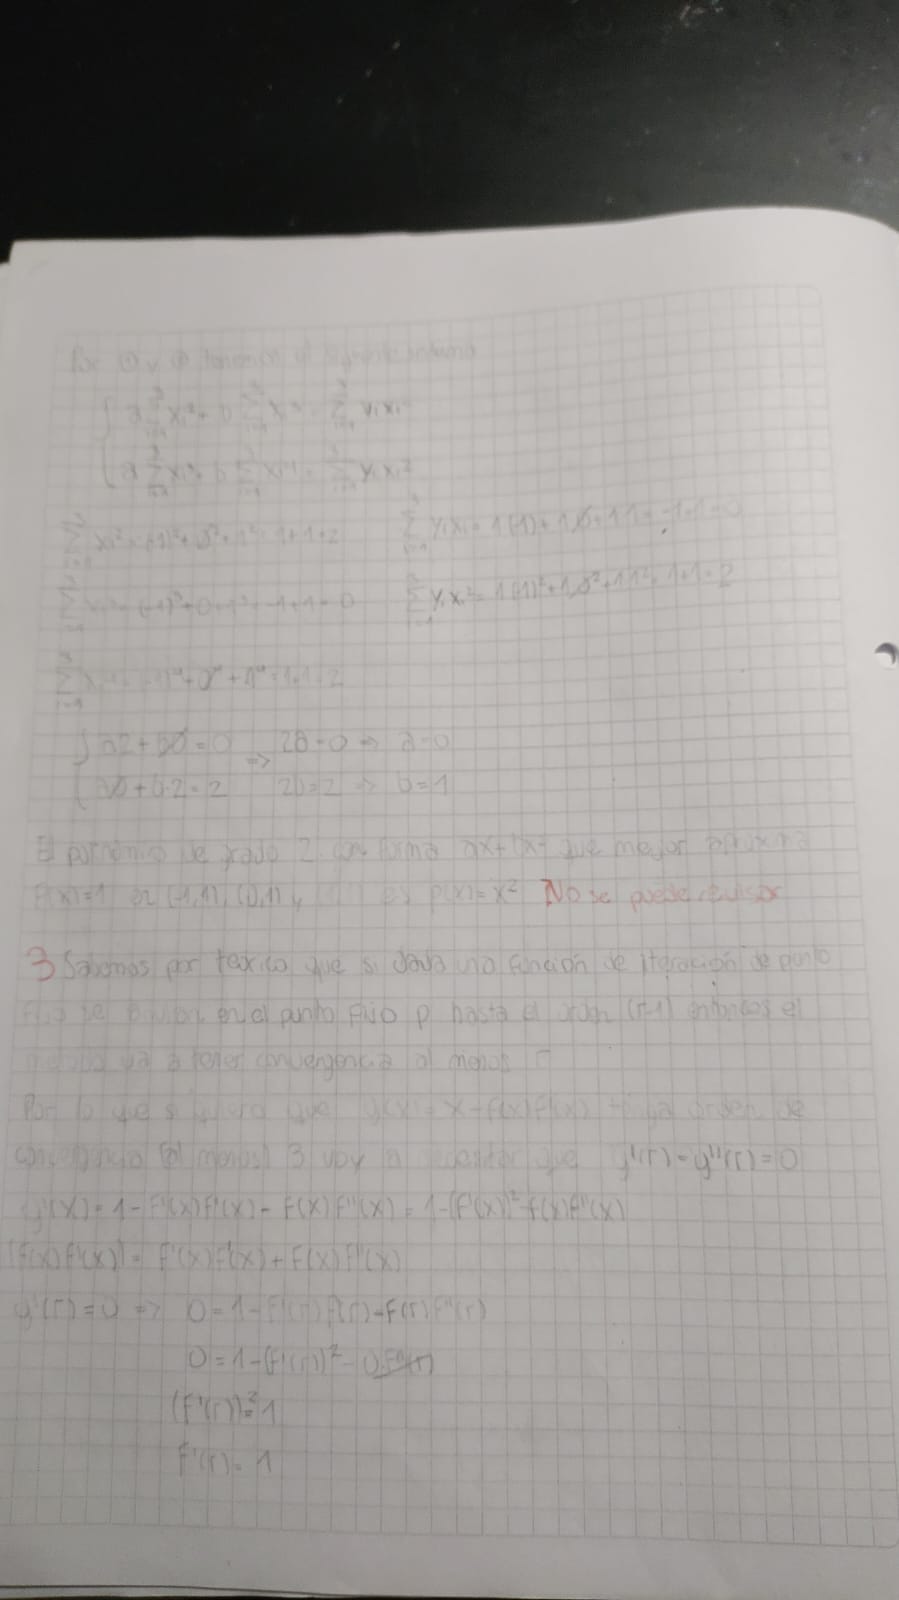 Por ① y ② tenemos el siguiente sistema
{ a ∑ xi² + b ∑ xi³ = ∑ yi xi
{ a ∑ xi³ + b ∑ xi⁴ = ∑ yi xi²
∑ xi² = (-1)² + 0² + 1² = 1+1=2 ∑ yi xi = 1(-1) + 1.0 + 1.1 = -1+1=0
∑ xi³ = (-1)³ + 0 + 1³ = -1+1=0 ∑ yi xi² = 1(-1)² + 1.0² + 1.1² = 1+1=2
∑ xi⁴ = (-1)⁴ + 0⁴ + 1⁴ = 1+1=2
{ a2 + b0 = 0 => 2a=0 => a=0
{ a0 + b.2 = 2 2b=2 => b=1
El polinomio de grado 2 con forma ax+bx² que mejor aproxima
f(x)=1 en (-1,1), (0,1) y es p(x)=x² No se puede revisar
3 Sabemos por teórico que si dada una función de iteración de punto
fijo en el punto fijo p hasta el orden (r-1) entonces el
va a tener convergencia al menos r
Por lo que si quiero que g(x) = x - f(x)f'(x) tenga orden de
convergencia (al menos) 3 voy a necesitar que g'(r) = g''(r) = 0
g'(x) = 1 - f'(x)f'(x) - f(x)f''(x) = 1-(f'(x))² - f(x)f''(x)
(f(x)f'(x))' = f'(x)f'(x) + f(x)f''(x)
g'(r)=0 => 0 = 1 - f'(r)f'(r) - f(r)f''(r)
0 = 1 - (f'(r))² - 0.f''(r)
(f'(r))² = 1
f'(r) = 1